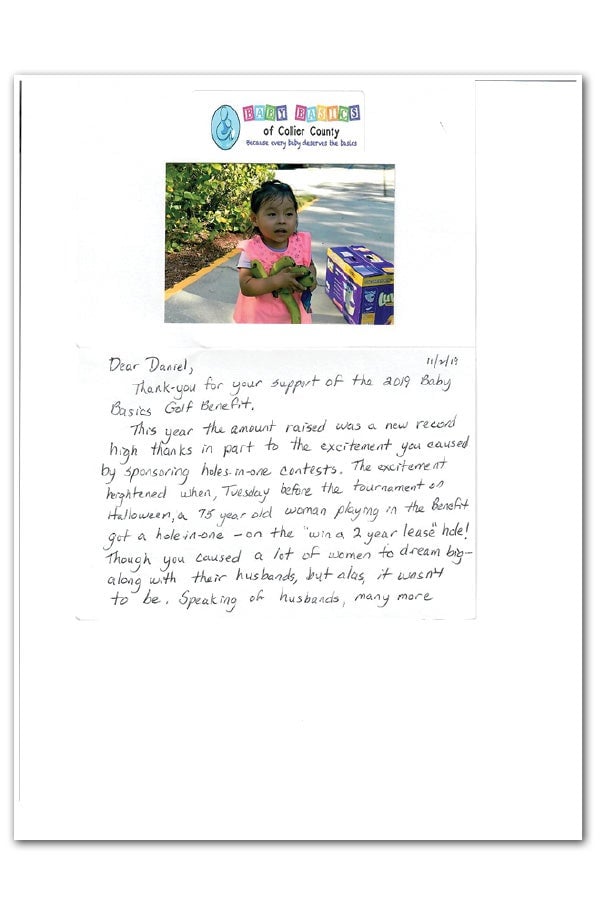 BABY BASICS
of Collier County
Because every baby deserves the basics
Luv
Dear Daniel,
11/2/19
Thank-you for your support of the 2019 Baby
Basics Golf Benefit.
This year the amount raised was a new record
high thanks in part to the excitement you caused
by sponsoring holes-in-one contests. The excitement
heightened when, Tuesday before the tournament on
Halloween, a 75 year old woman playing in the Benefit
got a hole-in-one - on the "win a 2 year lease" hole!
Though you caused a lot of women to dream big—
along with their husbands, but alas, it wasn't
to be. Speaking of husbands, many more